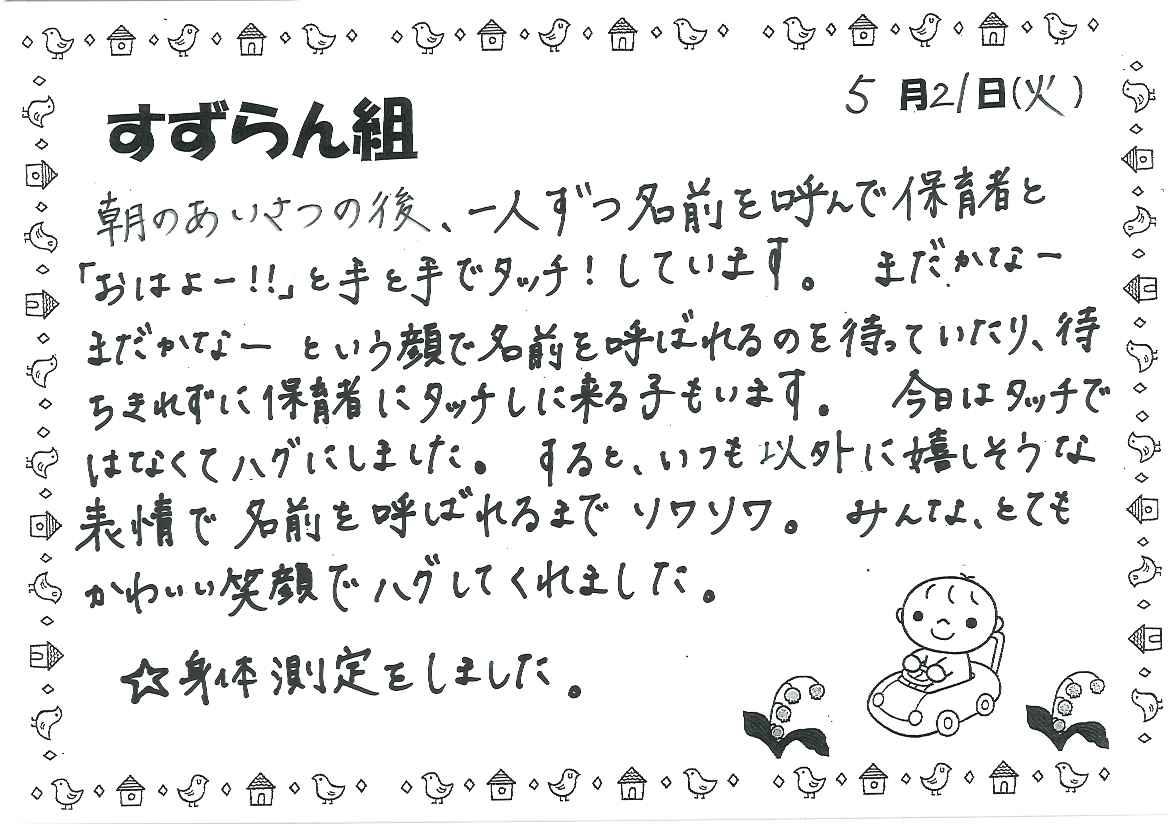 5月21日(火)
すずらん組
朝のあいさつの後、一人ずつ名前を呼んで保育者と
「おはよー!!」と手と手でタッチ!しています。 まだかなー
まだかなー という顔で名前を呼ばれるのを待っていたり、待
ちきれずに保育者にタッチしに来る子もいます。 今日はタッチで
はなくてハグにしました。 すると、いつも以外に嬉しそうな
表情で名前を呼ばれるまでソワソワ。 みんな、とても
かわいい笑顔でハグしてくれました。
☆身体測定をしました。